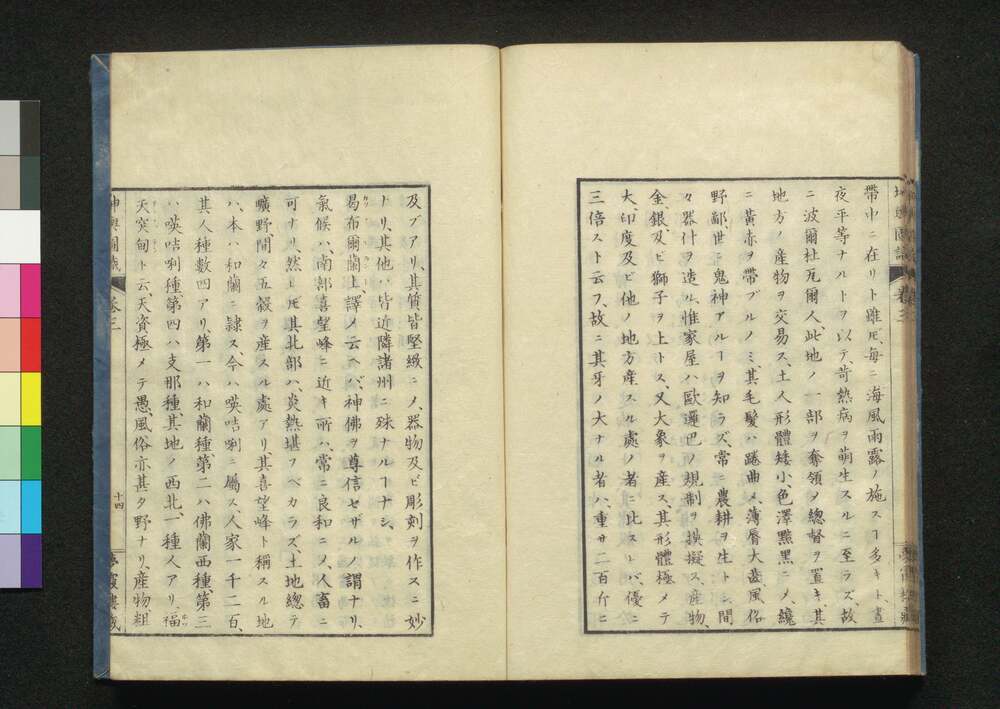 帶中ニ在リト雖𪜈、每ニ海風雨露ノ施スヿ多キト、晝
夜平等ナルトヲ以テ、苛熱病ヲ萌生スルニ至ラズ、故
ニ波爾杜瓦爾人、此地ノ一部ヲ奪領〆總督ヲ置キ、其
地方ノ産物ヲ交易ス、土人形體矮小、色澤黧黑ニ〆、纔
ニ黃赤ヲ帶ブルノミ、其毛髮ハ踡曲〆、薄脣大齒、風俗
野鄙、世ニ鬼神アルヿヲ知ラズ、常ニ農耕ヲ生トシ、間
々器什ヲ造ル、惟家屋ハ歐邏巴ノ規制ヲ摸擬ス、産物、
金銀、及ビ獅子ヲ上トス、又大象ヲ産ス、其形體極メテ
大、印度及ビ他ノ地方産スル處ノ者ニ比スレバ、優ニ
三倍スト云フ、故ニ其牙ノ大ナル者ハ、重サ二百斤ニ
卷三
及ブアリ、其質皆堅緻ニ〆、器物及ビ彫刻ヲ作スニ妙
トリ、其他ハ皆近隣諸州ニ殊ナルヿナシ、
曷布爾蘭土譯〆云ヘバ、神佛ヲ尊信セザルノ謂ナリ、
氣候ハ、南部喜望峰ニ近キ所ハ、常ニ良和ニ〆、人畜ニ
可ナリ、然レ𪜈其北部ハ、炎熱堪フベカラズ、土地總テ
曠野、間々五穀ヲ産スル處アリ、其喜望峰ト稱スル地
ハ、本ハ和蘭ニ隷ス、今ハ暎咭唎ニ屬ス、人家一千二百、
其人種數四アリ、第一ハ和蘭種、第二ハ佛蘭西種、第三
ハ暎咭唎種、第四ハ支那種、其地ノ西北、一種人アリ、福
天突甸ト云、天資極メテ愚、風俗亦甚タ野ナリ、産物、粗
坤輿圖識 卷三 十四